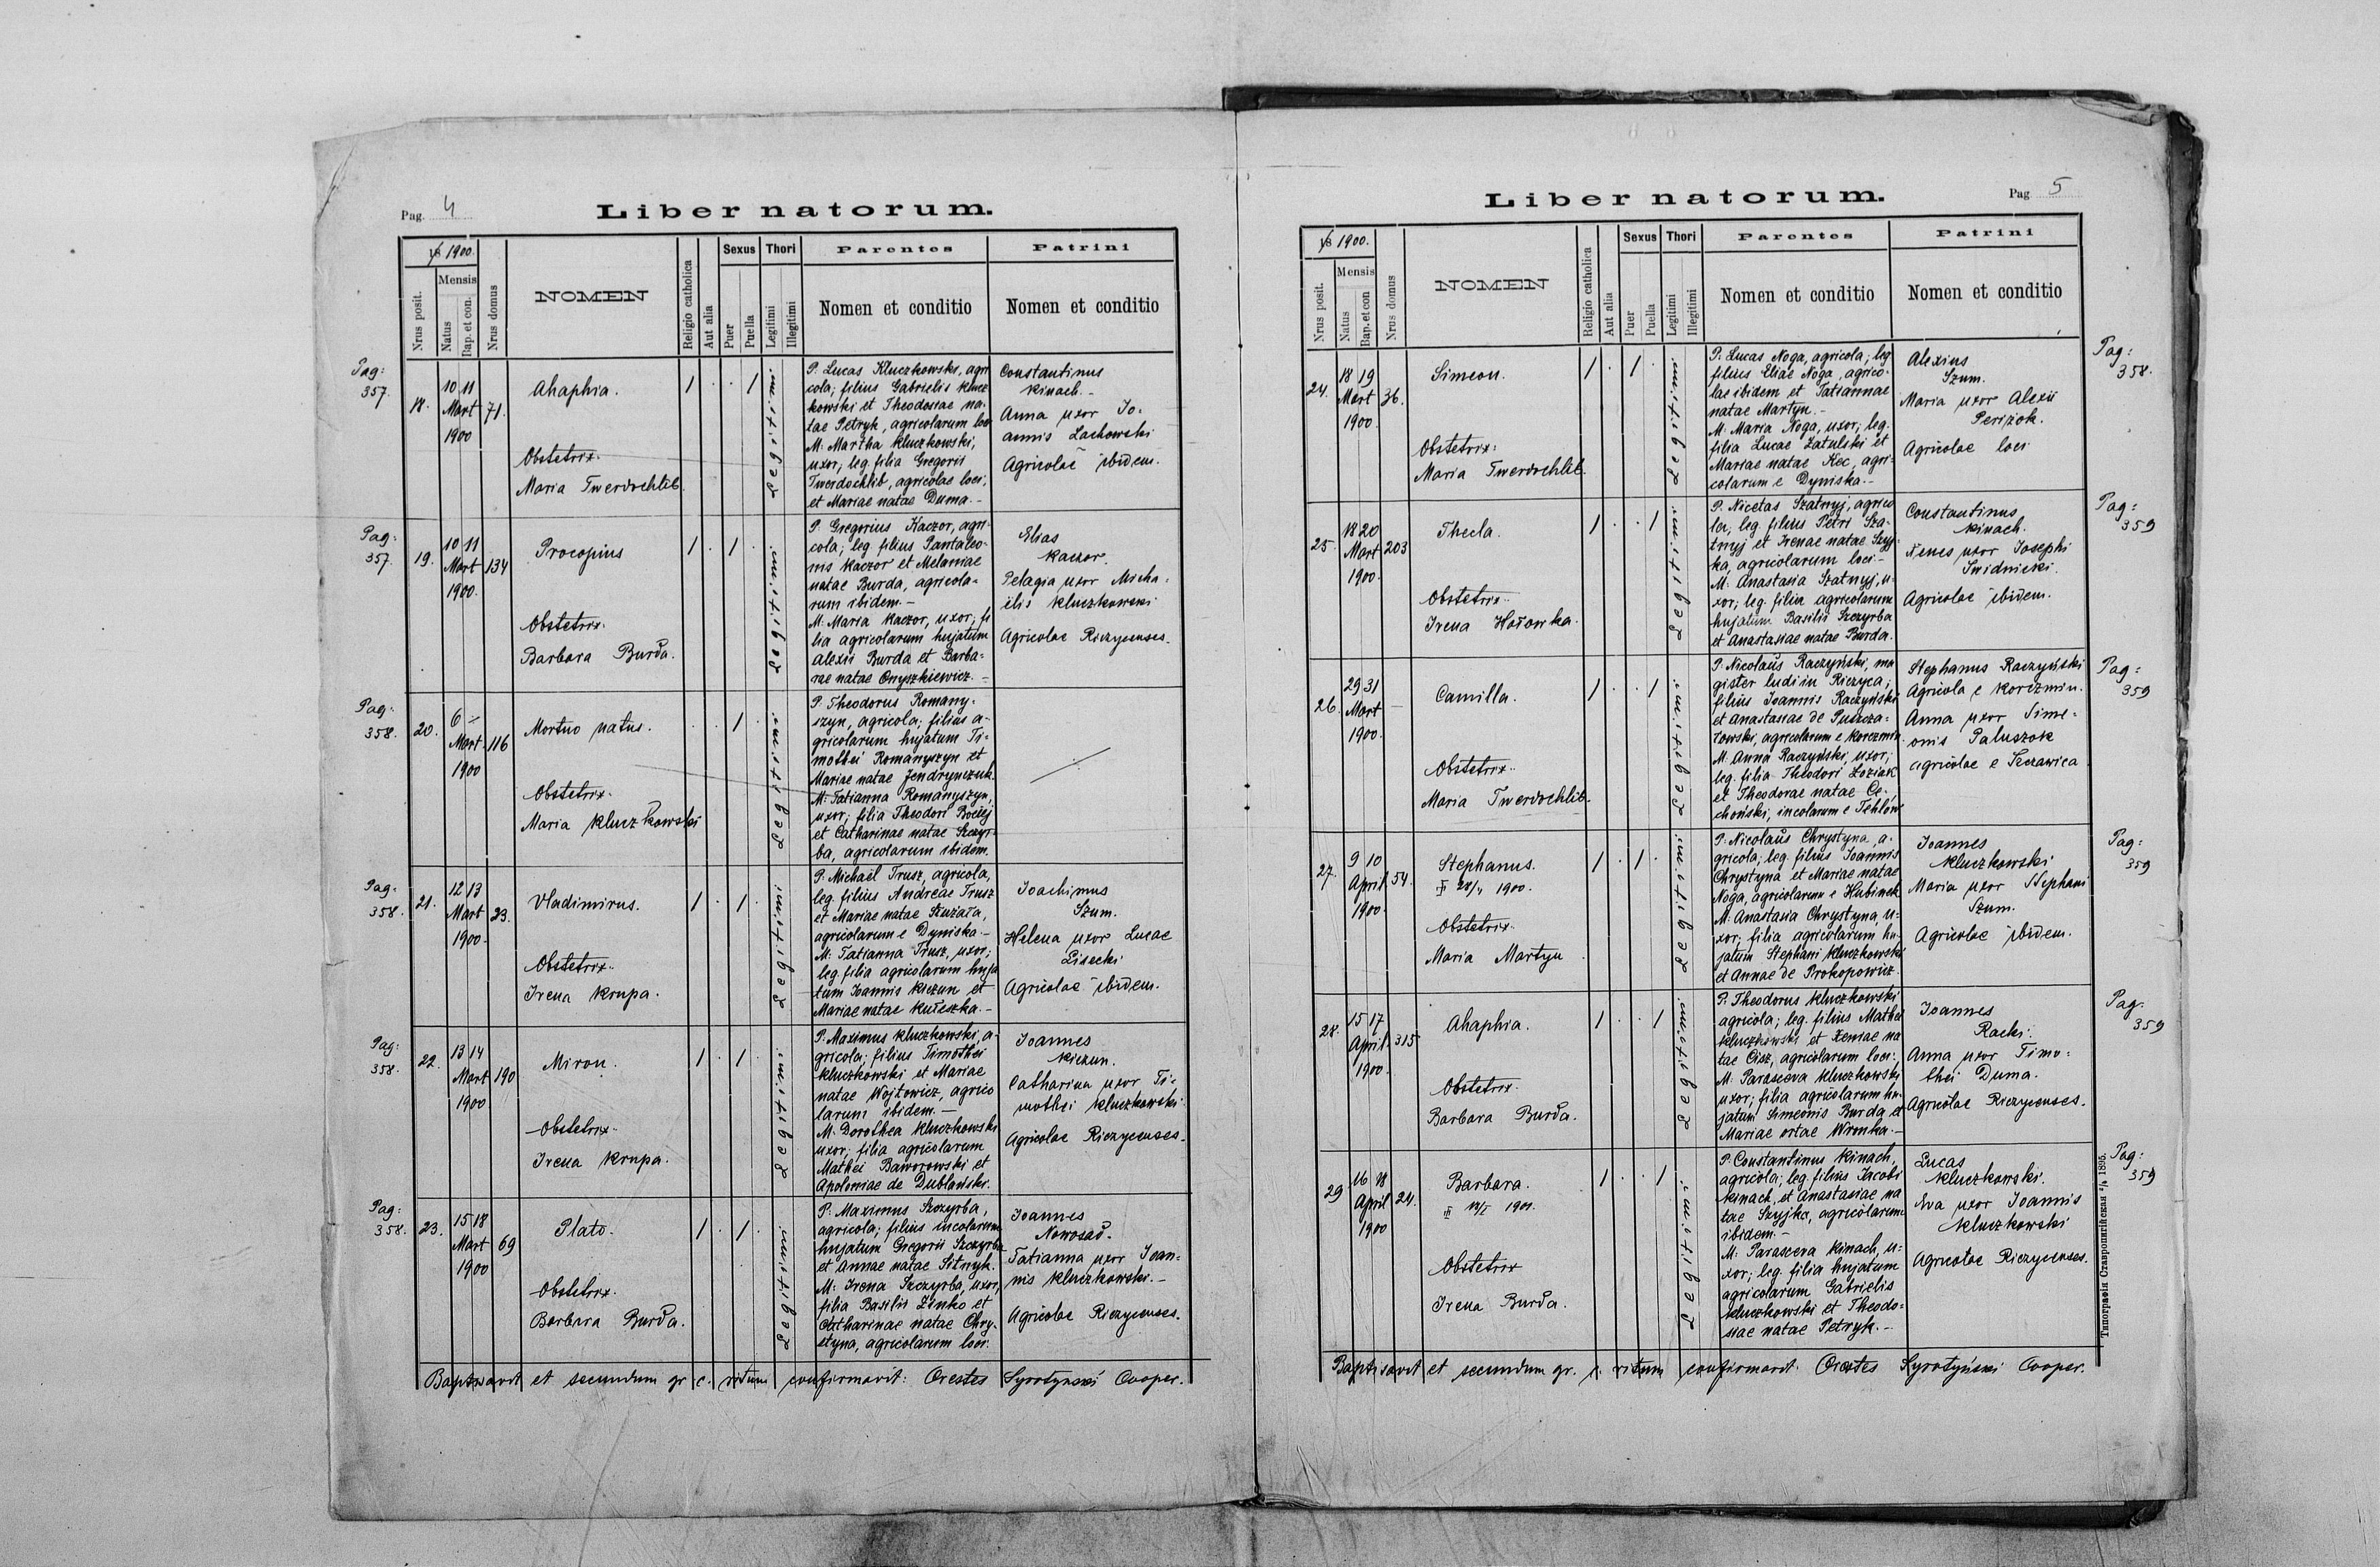 Pag. 4
Liber natorum.
18 1900.
Nrus posit.
Mensis
Natus
Bap. et con.
Nrus domus
NOMEN
Religio catholica
Aut alia
Sexus
Puer
Puella
Thori
Legitimi
Illegitimi
Parentes
Nomen et conditio
Patrini
Nomen et conditio
Pag:
357.
18.
10 11
Mart
1900
71.
Ahaphia.
Obstetrix.
Maria Twerdochlib.
1 . . 1
Legitimi
P. Lucas Kluczkowski, agri
cola; filius Gabrielis Klucz
kowski et Theodosiae na-
tae Petryk, agricolarum loci
M. Martha Kluczkowski,
uxor; leg. filia Gregorii
Twerdochlib, agricolae loci,
et Mariae natae Duma.-
Constantinus
Kinach.-
Anna uxor Jo-
annis Lachowski
Agricolae ibidem.
Pag:
357
19.
10 11
Mart
1900.
134
Procopius
Obstetrix.
Barbara Burda.
1 . 1 .
Legitimi
P. Gregorius Kaczor, agri-
cola; leg. filius Pantaleo-
nis Kaczor et Melaniae
natae Burda, agricola-
rum ibidem.-
M. Maria Kaczor, uxor, fi
lia agricolarum hujatum
Alexii Burda et Barba-
rae natae Onyszkiewicz.-
Elias
Kaczor.
Pelagia uxor Micha-
elis Kluczkowski
Agricolae Riczycenses.
Pag:
358.
20.
6 -
Mart
1900
116
Mortuo natus.
Obstetrix.
Maria Kluczkowski
. . 1 .
Legitimi
P. Theodorus Romany-
szyn, agricola; filius a-
gricolarum hujatum Ti-
mothei Romanyszyn et
Mariae natae Jendrynczuk.
M: Tatianna Romanyszyn,
uxor; filia Theodori
et Catharinae natae Szczyr-
ba, agricolarum ibidem.
Pag:
358.
21.
12 13
Mart
1900.
23.
Vladimirus.
Obstetrix.
Irena Krupa.
1 . 1 .
Legitimi
P. Michael Trusz, agricola,
leg. filius Andreae Trusz
et Mariae natae
agricolarum e Dyniska.-
M. Tatianna Trusz, uxor;
leg. filia agricolarum huja
tum Joannis Kiczun et
Mariae natae Kułeszka.-
Joachimus
Szum.
Helena uxor Lucae
Lisecki
Agricolae ibidem.
Pag:
358.
22.
13 14
Mart
1900
190
Miron.
Obstetrix.
Irena Krupa.
1 . 1 .
Legitimi
P. Maximus Kluczkowski, a-
gricola; filius Timothei
Kluczkowski et Mariae
natae Wojtowicz, agrico
larum ibidem.-
M. Dorothea Kluczkowski
uxor; filia agricolarum
Mathei Baworowski et
Apoloniae de Dublanski.
Joannes
Kiczun.
Catharina uxor Ti-
mothei Kluczkowski.
Agricolae Riczycenses.
Pag:
358.
23.
15 18
Mart
1900
69
Plato.
Obstetrix.
Barbara Burda.
1 . 1 .
Legitimi
P. Maximus Szczyrba,
agricola; filius incolarum
hujatum Gregorii Szczyrba
et Annae natae Sitnyk.
M. Irena Szczyrba, uxor,
filia Basilii Zinko et
Catharinae natae Chry-
styna, agricolarum loci.
Joannes
Nowosad.
Tatianna uxor Joan-
nis Kluczkowski.-
Agricolae Riczycenses.
Baptisavit et secundum gr. c. ritum confirmavit: Orestes Syrotyński Cooper.
Liber natorum.
Pag 5
18 1900.
Nrus posit.
Mensis
Natus
Bap. et con
Nrus domus
NOMEN
Religio catholica
Aut alia
Sexus
Puer
Puella
Thori
Legitimi
Illegitimi
Parentes
Nomen et conditio
Patrini
Nomen et conditio
24.
18 19
Mart
1900.
36.
Simeon.
Obstetrix:
Maria Twerdochlib.
1 . 1 .
Legitimi
P. Lucas Noga, agricola; leg
filius Eliae Noga, agrico-
lae ibidem et Tatiannae
natae Martyn.-
M. Maria Noga, uxor; leg.
filia Lucae Zatulski et
Mariae natae Kec, agri-
colarum e Dyniska.-
Alexius
Szum.
Maria uxor Alexii
Perizok.
Agricolae loci
Pag:
358.
25.
18 20
Mart
1900.
203
Thecla.
Obstetrix.
Irena Hołowka.
1 . . 1
Legitimi
P. Nicetas Szatnyj, agrico
la, leg. filius Petri Sza-
tnyj et Irenae natae Szyj-
ka, agricolarum loci.-
M. Anastasia Szatnyj, u-
xor; leg. filia agricolarum
hujatum Basilii Szczyrba
et Anastasiae natae Burda.
Constantinus
Kinach.
Xenes uxor Josephi
Swidnicki.
Agricolae ibidem.
Pag:
359
26.
29 31
Mart
1900.
-
Camilla.
Obstetrix.
Maria Twerdochlib.
1 . . 1
Legitimi
P. Nicolaus Raczyński, ma
gister ludi in Riczyca;
filius Joannis Raczyński
et Anastasiae de Puszcza-
łowski, agricolarum e Korczmin
M. Anna Raczyński, uxor;
leg. filia Theodori Łoziak
et Theodorae natae Ce-
choński, incolarum e Tehlów
Stephanus Raczyński
Agricola e Korczmin.
Anna uxor Sime-
onis Paluszok
agricolae e Szczawica
Pag:
359
27.
9 10
April
1900.
54.
Stephanus.
1900.
Obstetrix.
Maria Martyn
1 . 1 .
Legitimi
P. Nicolaus Chrystyna, a-
gricola; leg. filius Joannis
Chrystyna et Mariae natae
Noga, agricolarum e Hubinek
M. Anastasia Chrystyna, u-
xor; filia agricolarum hu-
jatum Stephani Kluczkowski
et Annae de Prokopowicz.
Joannes
Kluczkowski
Maria uxor Stephani
Szum.
Agricolae ibidem.
Pag:
359
28.
15 17
April
1900.
315
Ahaphia.
Obstetrix.
Barbara Burda.
1 . . 1
Legitimi
P. Theodorus Kluczkowski
agricola; leg. filius Mathei
Kluczkowski et Xeniae na
tae Cisz, agricolarum loci.
M. Parasceva Kluczkowski
uxor; filia agricolarum hu-
jatum Simeonis Burda et
Mariae ortae Wronka.-
Joannes
Racki.
Anna uxor Timo-
thei Duma.
Agricolae Riczycenses.
Pag:
359
29
16 18
April
1900
24.
Barbara.
Obstetrix
Irena Burda.
1 . . 1
Legitimi
P. Constantinus Kinach,
agricola; leg. filius Jacobi
Kinach, et Anastasiae na
tae Szyjka, agricolarum
ibidem.-
M. Parasceva Kinach, u-
xor; leg. filia hujatum
agricolarum Gabrielis
Kluczkowski et Theodo-
siae natae Petryk.-
Lucas
Kluczkowski.
Eva uxor Joannis
Kluczkowski
Agricolae Riczycenses.
Pag:
359
Baptisavit et secundum gr. c. ritum confirmavit: Orestes Syrotyński Cooper.
Типографія Ставропигійская 1895.